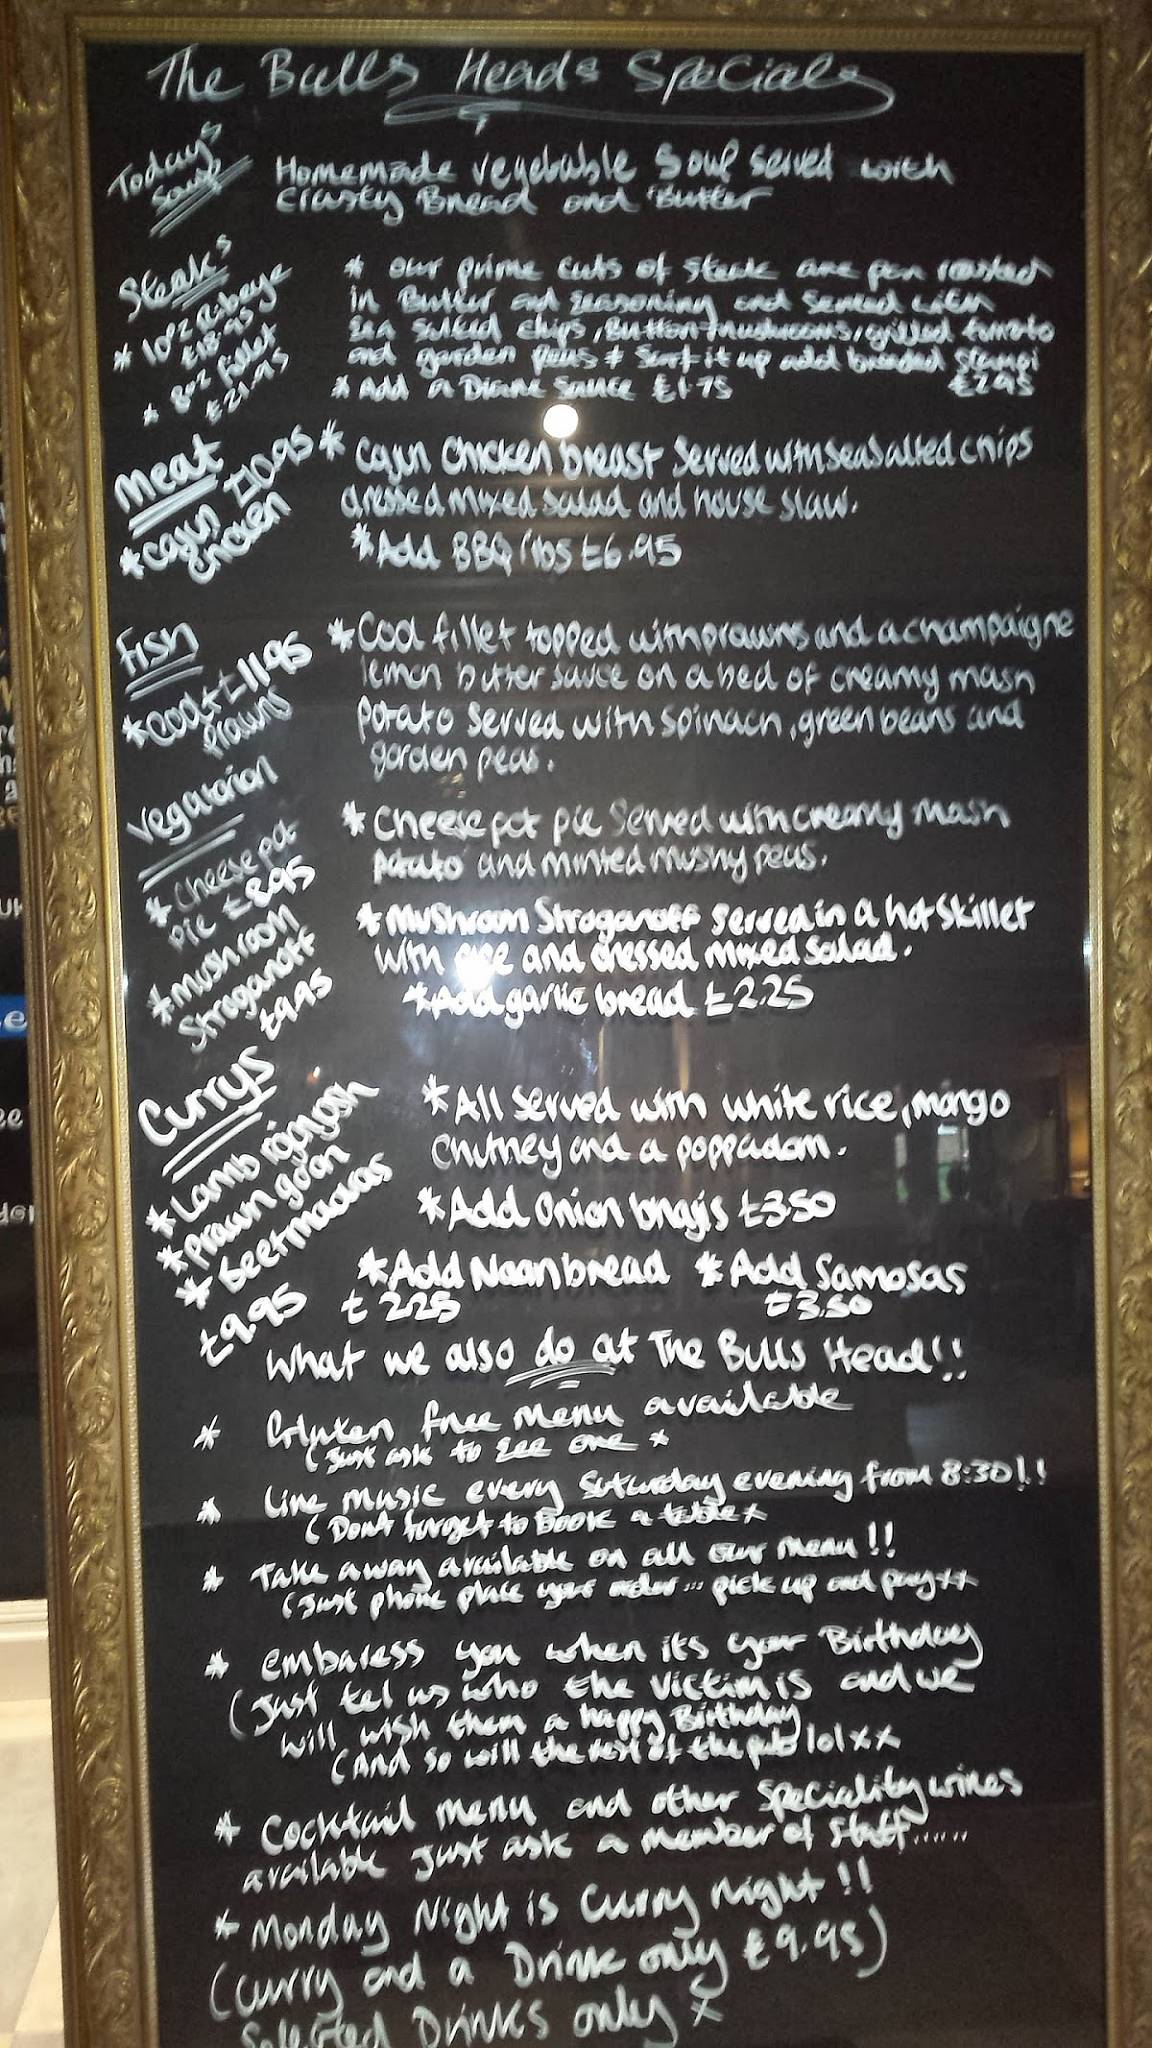 The Bulls Heads Specials
Today's
Soup
Homemade vegetable Soup served with
Crusty Bread and Butter
Steak's
* 10oz Ribeye
£18.95
* 8oz fillet
£21.95
* our prime cuts of steak are pan roasted
in Butter and seasoning and served with
Sea Salted chips, Button mushrooms, grilled tomato
and garden peas * Surf it up add breaded scampi
* Add a Diane Sauce £1.75 £2.95
Meat
* Cajun £10.95
Chicken
* Cajun Chicken breast Served with sea salted chips
dressed mixed salad and house slaw.
* Add BBQ ribs £6.95
Fish
* Cod + £11.95
Prawns
* Cod fillet topped with prawns and a champaigne
lemon butter sauce on a bed of creamy mash
potato Served with spinach, green beans and
garden peas.
Vegatarian
* Cheese pot
pie £8.95
* mushroom
Stroganoff
£9.95
* Cheese pot pie Served with creamy mash
potato and minted mushy peas.
* Mushroom Stroganoff served in a hot skillet
with rice and dressed mixed salad.
* Add garlic bread £2.25
Currys
* Lamb roganjosh
* prawn goan
* Beef madras
£9.95
* All Served with white rice, mango
Chutney and a poppadom.
* Add Onion bhagis £3.50
* Add Naan bread * Add Samosas
£2.25 £3.50
What we also do at The Bulls Head!!
* Gluten free Menu available
(Just ask to see one x
* Live music every Saturday evening from 8:30!!
(Don't forget to Book a table x
* Take away available on all our menu!!
(Just phone place your order... pick up and pay xx
* embaress you when its your Birthday
(Just tel us who the victim is and we
will wish them a happy Birthday
(And so will the rest of the pub lol xx
* Cocktail menu and other Speciality wines
available just ask a member of staff......
* Monday Night is Curry night!!
(Curry and a Drink only £9.95)
Selected Drinks only x